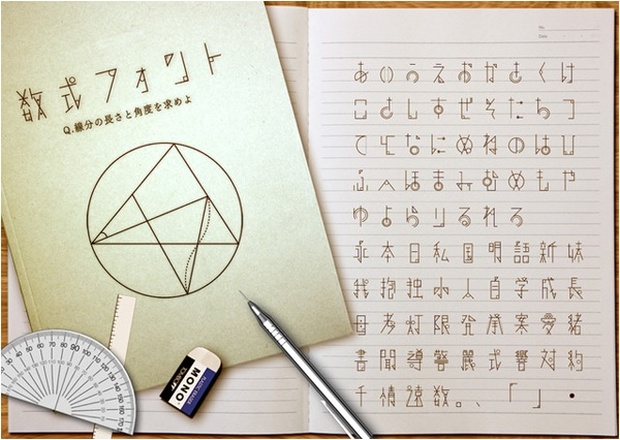 数式フォント
Q.線分の長さと角度を求めよ
No.
Date
あいうえおかきくけ
こさしすせそたちつ
てとなにぬねのはひ
ふへほまみむめもや
ゆよらりるれろ
永本日私国明語新妹
我抱独小人自学成長
母考灯限発承案愛緒
書聞導警麗式響対約
千情速数。、「」・
MONO